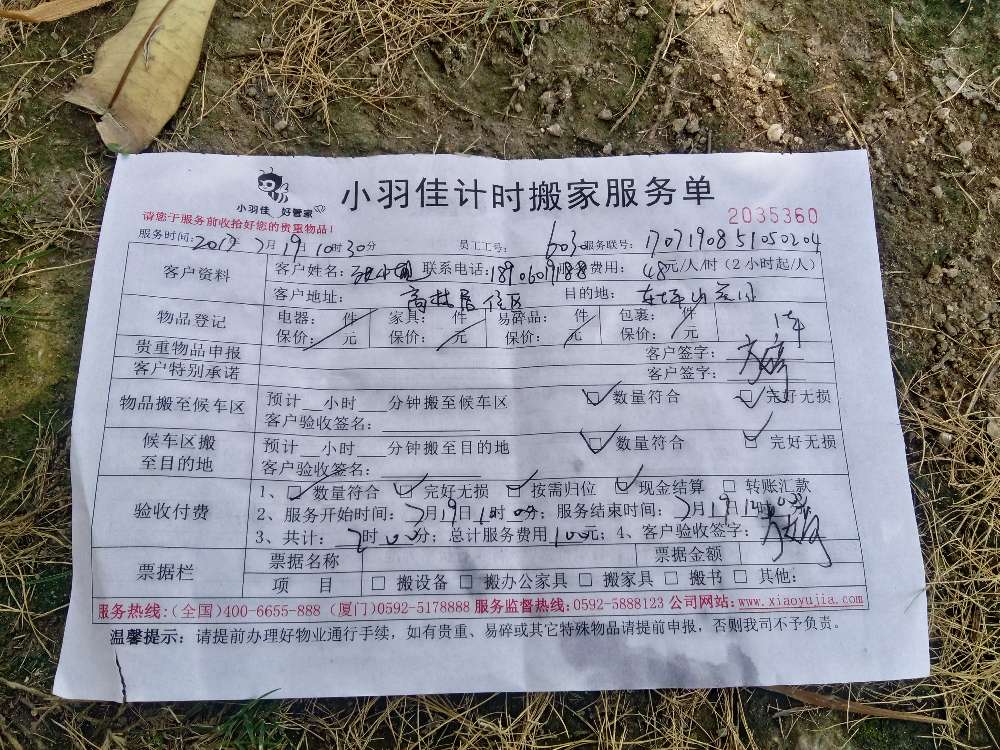 小羽佳 好管家
小羽佳计时搬家服务单
2035360
请您于服务前收拾好您的贵重物品!
服务时间: 2017年7月19日10时30分 员工工号: 6030 服务联号: 1707190851050204
客户资料 客户姓名: 联系电话: 服务费用: 48元/人/时(2小时起/人)
客户地址: 高林居住区 目的地:
物品登记 电器: 件 家具: 件 易碎品: 件 包裹: 件
保价: 元 保价: 元 保价: 元 保价: 元
贵重物品申报 客户签字:
客户特别承诺 客户签字:
物品搬至候车区 预计 小时 分钟搬至候车区 数量符合 完好无损
客户验收签名:
候车区搬至目的地 预计 小时 分钟搬至目的地 数量符合 完好无损
客户验收签名:
验收付费 1、 数量符合 完好无损 按需归位 现金结算 转账汇款
2、服务开始时间: 7月19日 时00分; 服务结束时间: 7月19日 时
3、共计: 2时00分; 总计服务费用100元; 4、客户验收签字:
票据栏 票据名称 票据金额
项 目 搬设备 搬办公家具 搬家具 搬书 其他:
服务热线:(全国)400-6655-888 (厦门)0592-5178888 服务监督热线:0592-5888123 公司网站:www.xiaoyujia.com
温馨提示: 请提前办理好物业通行手续, 如有贵重、易碎或其它特殊物品请提前申报, 否则我司不予负责。